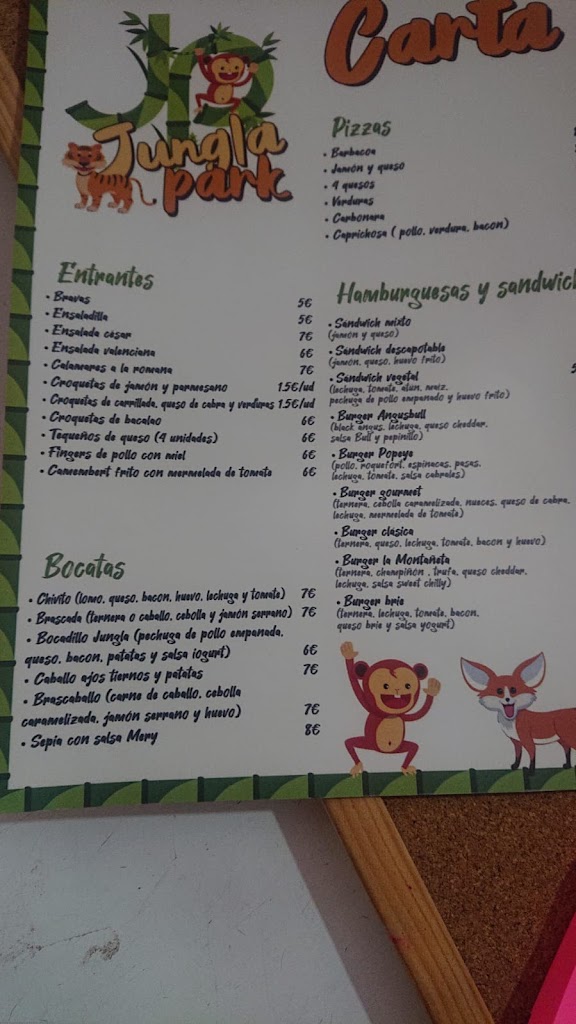 JP
Jungla
park
Carta
Pizzas
• Barbacoa
• Jamón y queso
• 4 quesos
• Verduras
• Carbonara
• Caprichosa ( pollo, verdura, bacon)
Entrantes
• Bravas 5€
• Ensaladilla 5€
• Ensalada césar 7€
• Ensalada valenciana 6€
• Calamares a la romana 7€
• Croquetas de jamón y parmesano 1.5€/ud
• Croquetas de carrillada, queso de cabra y verduras 1.5€/ud
• Croquetas de bacalao 6€
• Tequeños de queso (4 unidades) 6€
• Fingers de pollo con miel 6€
• Camembert frito con mermelada de tomate 6€
Hamburguesas y sandwich
• Sandwich mixto
(jamón y queso)
• Sandwich descapotable
(jamón, queso, huevo frito)
• Sandwich vegetal
(lechuga, tomate, atun, maiz,
pechuga de pollo empanado y huevo frito)
• Burger Angusbull
(black angus, lechuga, queso cheddar,
salsa Bull y pepinillo)
• Burger Popeye
(pollo, roquefort, espinacas, pasas,
lechuga, tomate, salsa cabrales)
• Burger gourmet
(ternera, cebolla caramelizada, nueces, queso de cabra,
lechuga, mermelada de tomate)
• Burger clásica
(ternera, queso, lechuga, tomate, bacon y huevo)
• Burger la Montañeta
(ternera, champiñón , trufa, queso cheddar,
lechuga, salsa sweet chilly)
• Burger brie
(ternera, lechuga, tomate, bacon,
queso brie y salsa yogurt)
Bocatas
• Chivito (lomo, queso, bacon, huevo, lechuga y tomate) 7€
• Brascada (ternera o caballo, cebolla y jamón serrano) 7€
• Bocadillo Jungla (pechuga de pollo empanada,
queso, bacon, patatas y salsa iogurt) 6€
• Caballo ajos tiernos y patatas 7€
• Brascaballo (carne de caballo, cebolla
caramelizada, jamón serrano y huevo) 7€
• Sepia con salsa Mery 8€